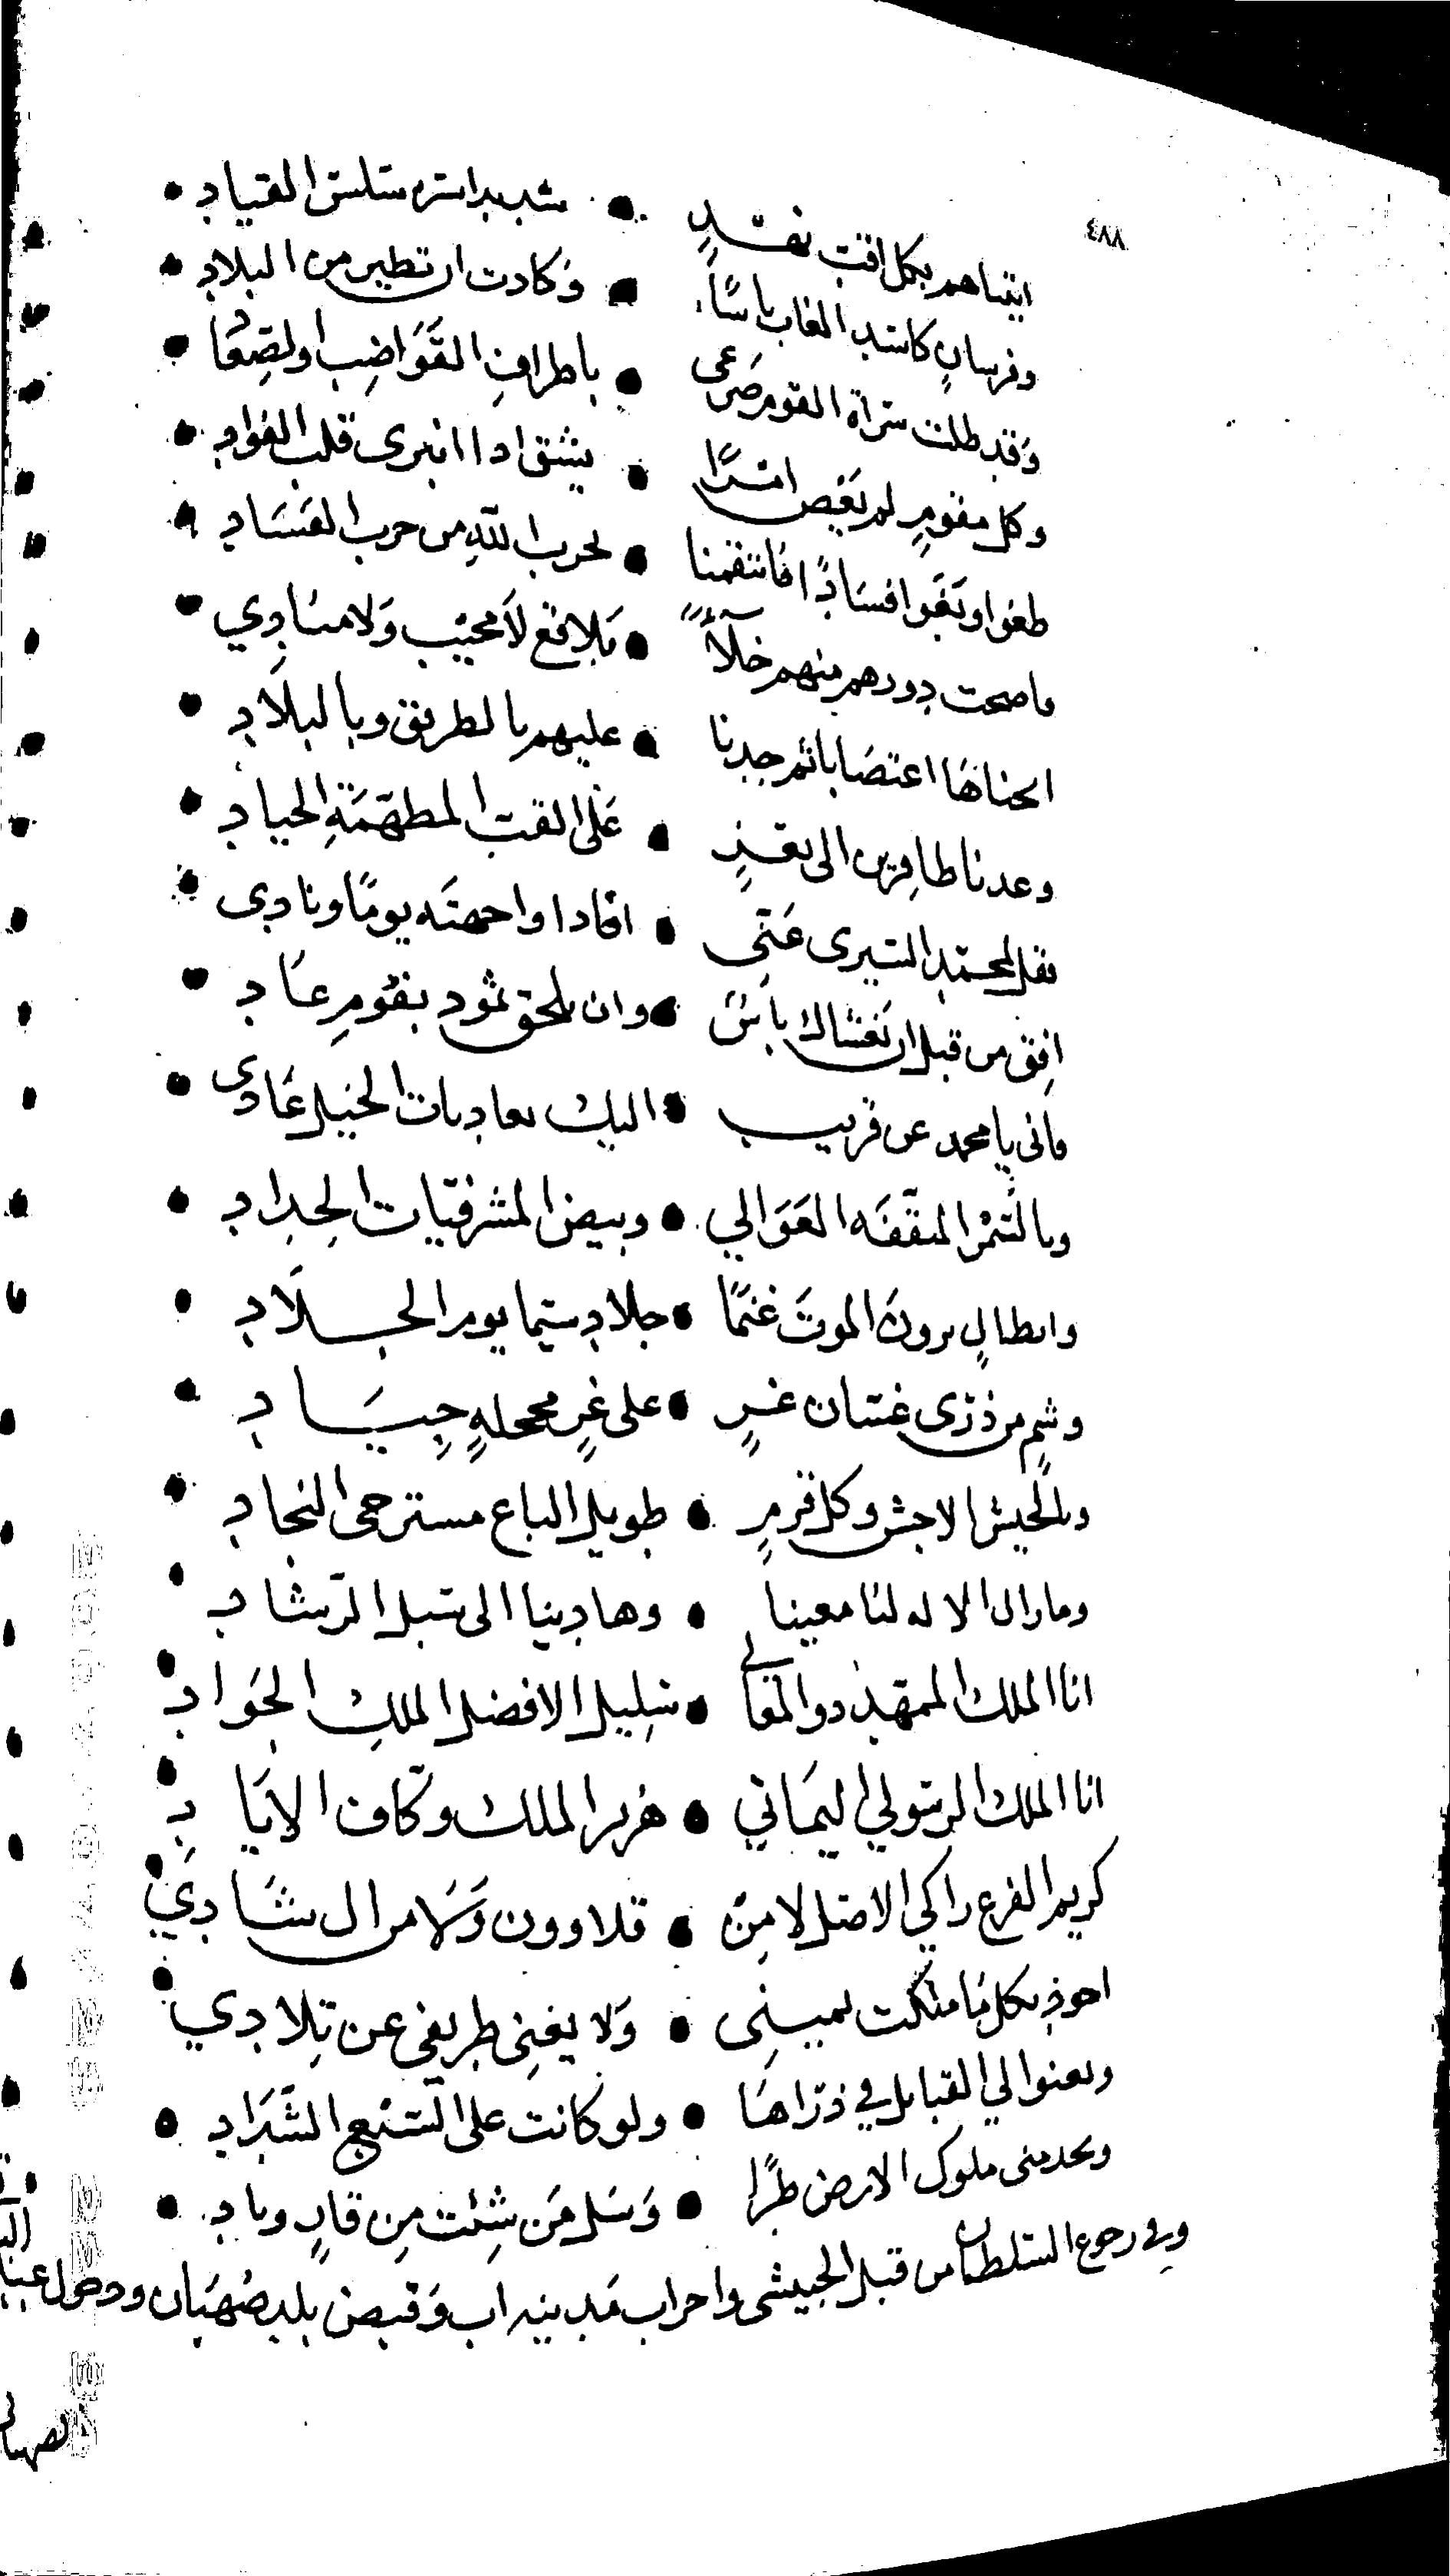 ٨٧٤
اتيناهم بكل اقب نهد • شديد اسره سلس القياد •
وفرسان كاسد الغاب باسًا • وكادت ان تطير من البلاد •
وقد طلت سراة القوم صرعى • باطراف القواضب والصعاد •
وكل مقوم لم يعص امرًا • يشق اذا انبرى قلب الفواد •
طغوا وبغوا فسادًا فانتقمنا • لحرب الله من حرب الفساد •
فاصبحت دورهم منهم خلاءً • بلاقع لا مجيب ولا منادي •
ابحناها اغتصابا ثم جدنا • عليهم بالطريف وبالتلاد •
وعدنا ظافرين الى تعز • على القب المطهمة الجياد •
فقل لمحمد السيرى عني • اذا واجهته يومًا ونادى •
افق من قبل ان تغشاك باس • وان تلحق ثمود بقوم عاد •
فاني يا محمد عن قريب • اليك بعاديات الخيل غادى •
وبالسمر المثقفه العوالي • وبيض المشرفيات الحداد •
وابطال يرون الموت غنمًا • جلاد سيما يوم الجلاد •
وشم من ذرى غسان غر • على غر محجلة جياد •
وبالجيش الاجش وكل قرم • طويل الباع مسترخى النجاد •
وما زال الاله لنا معينا • وهادينا الى سبل الرشاد
انا الملك الممهد ذو المعالي • سليل الافضل الملك الجواد
انا الملك الرسولي اليماني • هزبر الملك وكاف الاياد
كريم الفرع زاكي الاصل لا من • قلاوون ولا من ال شادي
اجود بكل ما ملكت يميني • ولا يغني طريفي عن تلادي
وتعنوا لي القبايل في ذراها • ولو كانت على السبع الشداد •
ويخدمني ملوك الارض طرًا • وسل من شئت من قار وباد •
وفي رجوع السلطان من قبل الحبيشي واخراب مدينه اب وقبض بلد صهبان ودخول